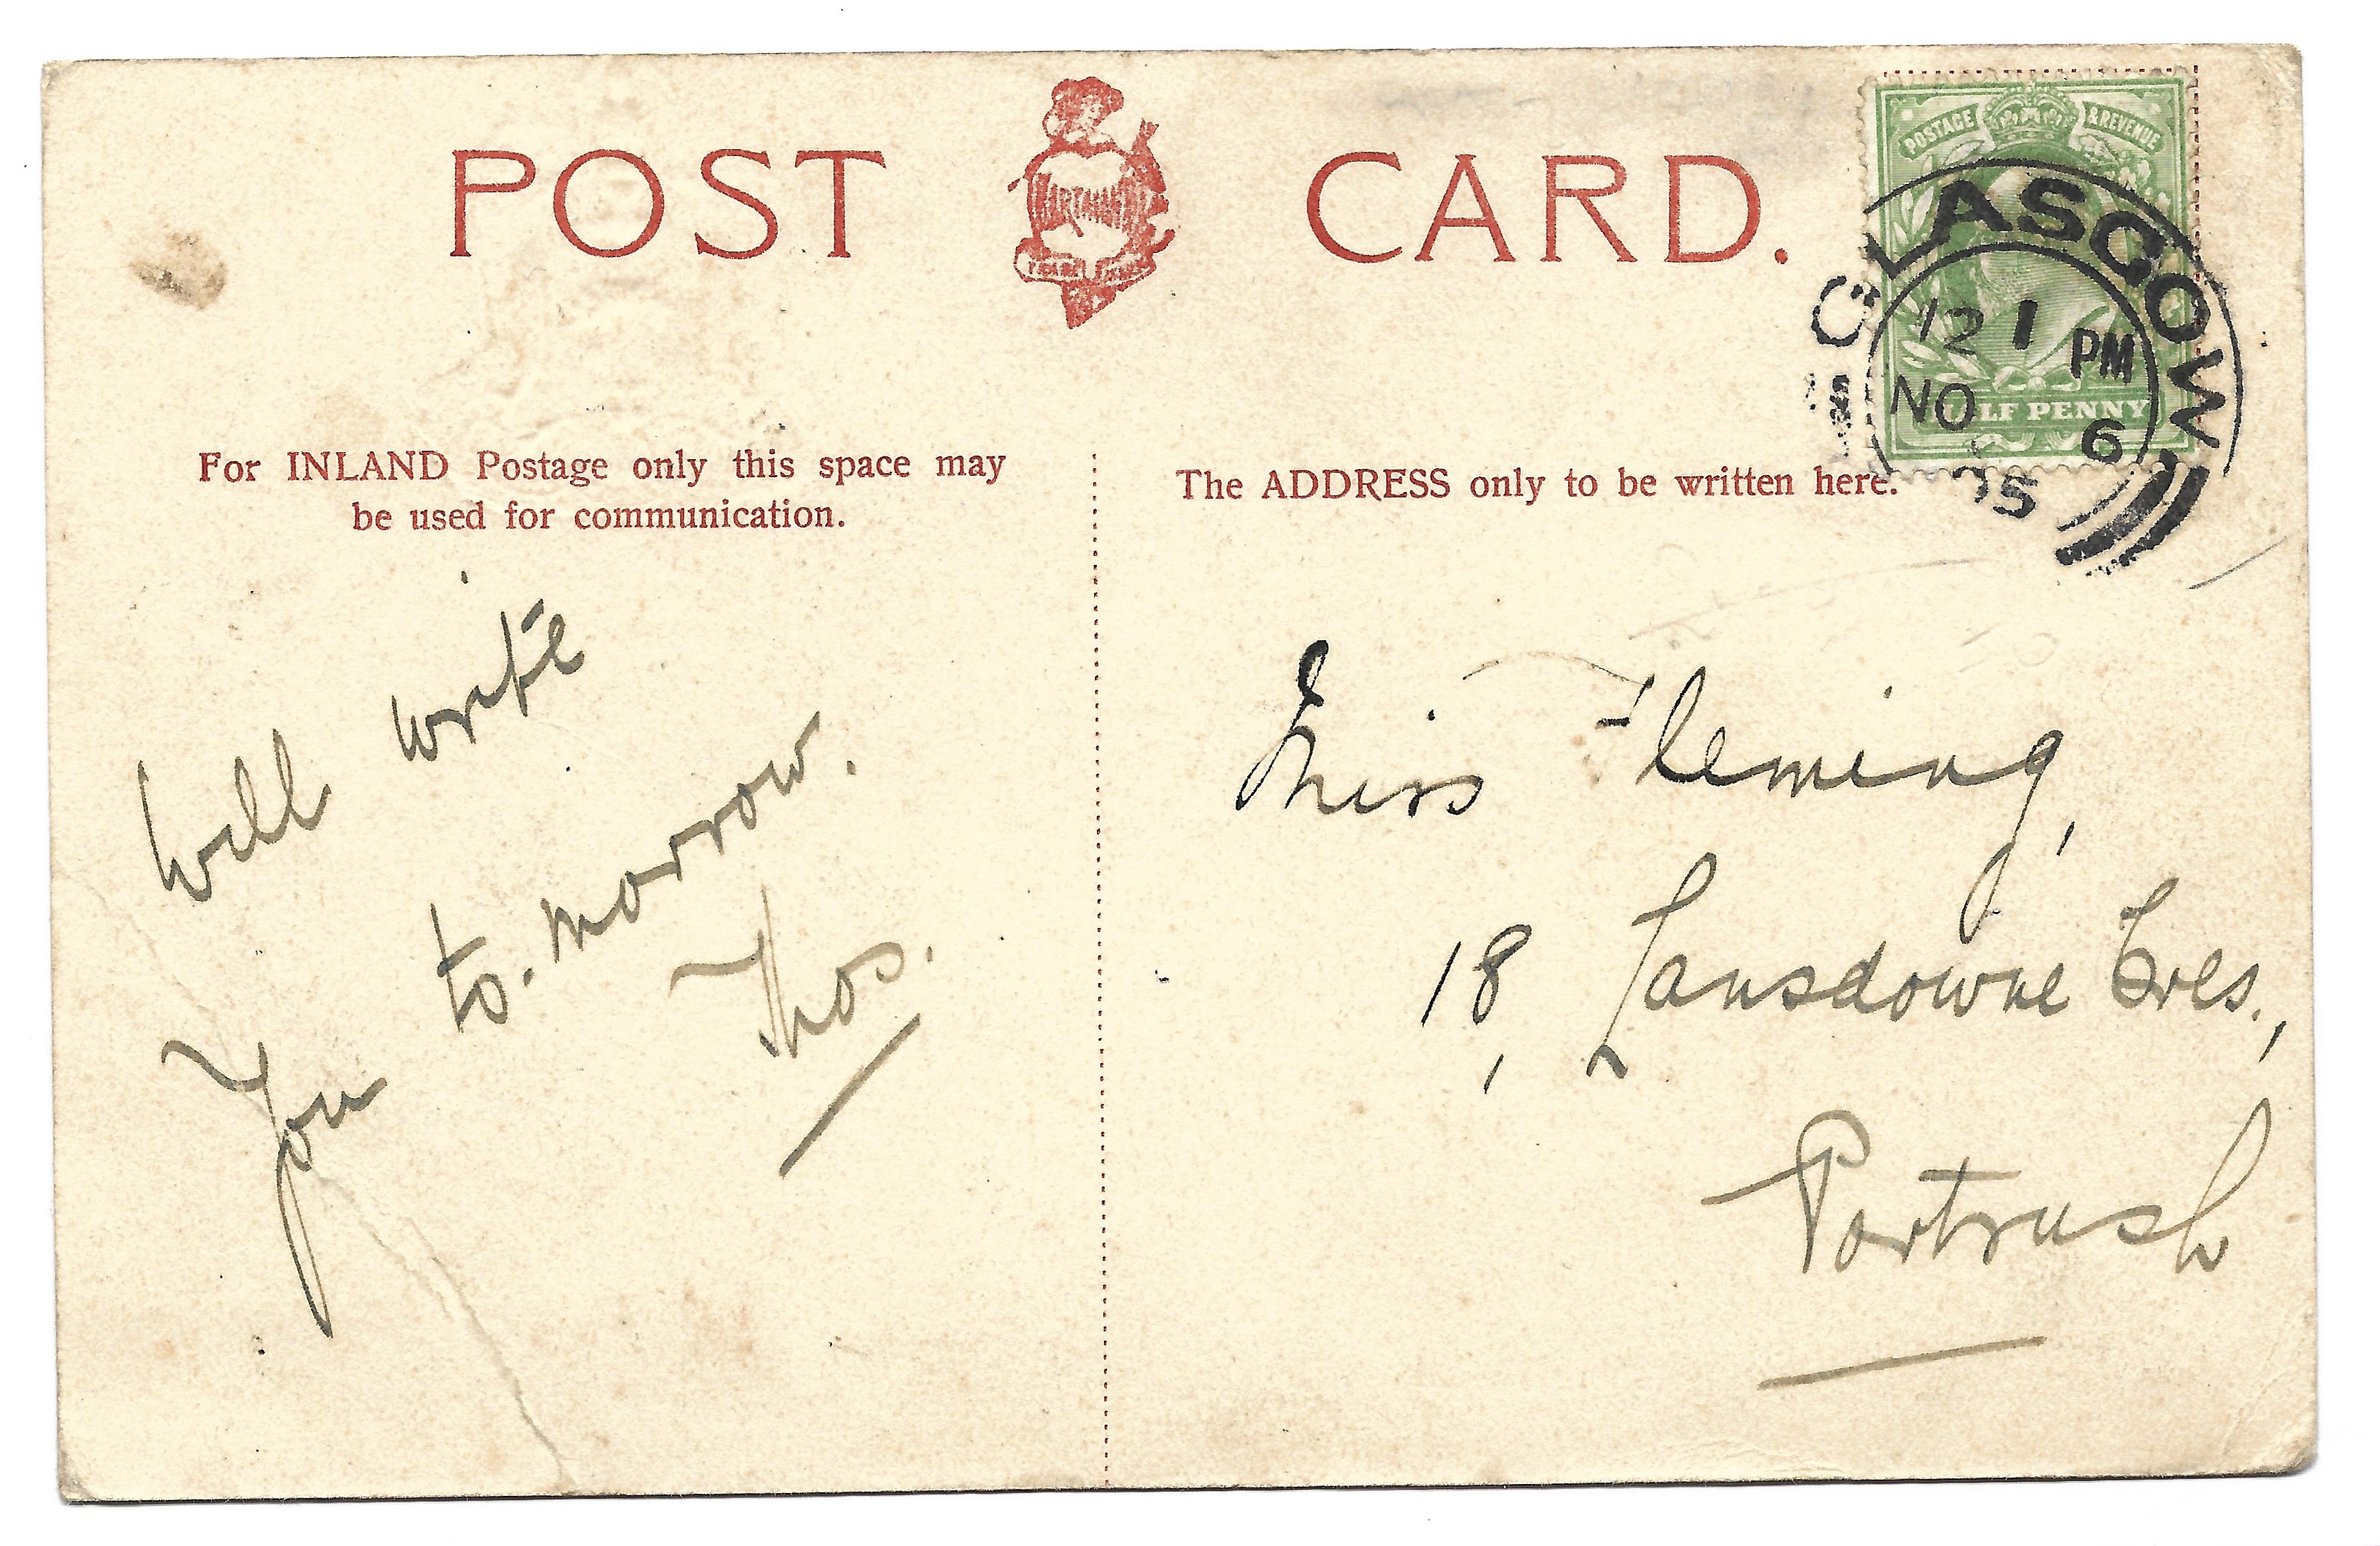 POST CARD.
HARTMANN
POSTAGE & REVENUE
HALF PENNY
GLASGOW
12 1 PM
NO 6
05
For INLAND Postage only this space may
be used for communication.
The ADDRESS only to be written here.
Will write
You to-morrow.
Thos.
Miss Fleming,
18, Lansdowne Cres.,
Portrush